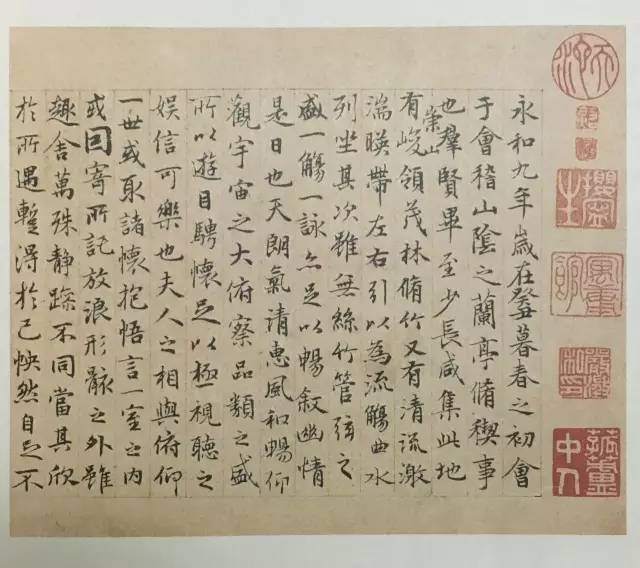 永和九年歲在癸丑暮春之初會
于會稽山陰之蘭亭脩稧事
也羣賢畢至少長咸集此地
有崇山峻領茂林脩竹又有清流激
湍暎帶左右引以為流觴曲水
列坐其次雖無絲竹管弦之
盛一觴一詠亦足以暢敘幽情
是日也天朗氣清惠風和暢仰
觀宇宙之大俯察品類之盛
所以遊目騁懷足以極視聽之
娛信可樂也夫人之相與俯仰
一世或取諸懷抱悟言一室之内
或因寄所託放浪形骸之外雖
趣舍萬殊静躁不同當其欣
於所遇蹔得於己怏然自足不